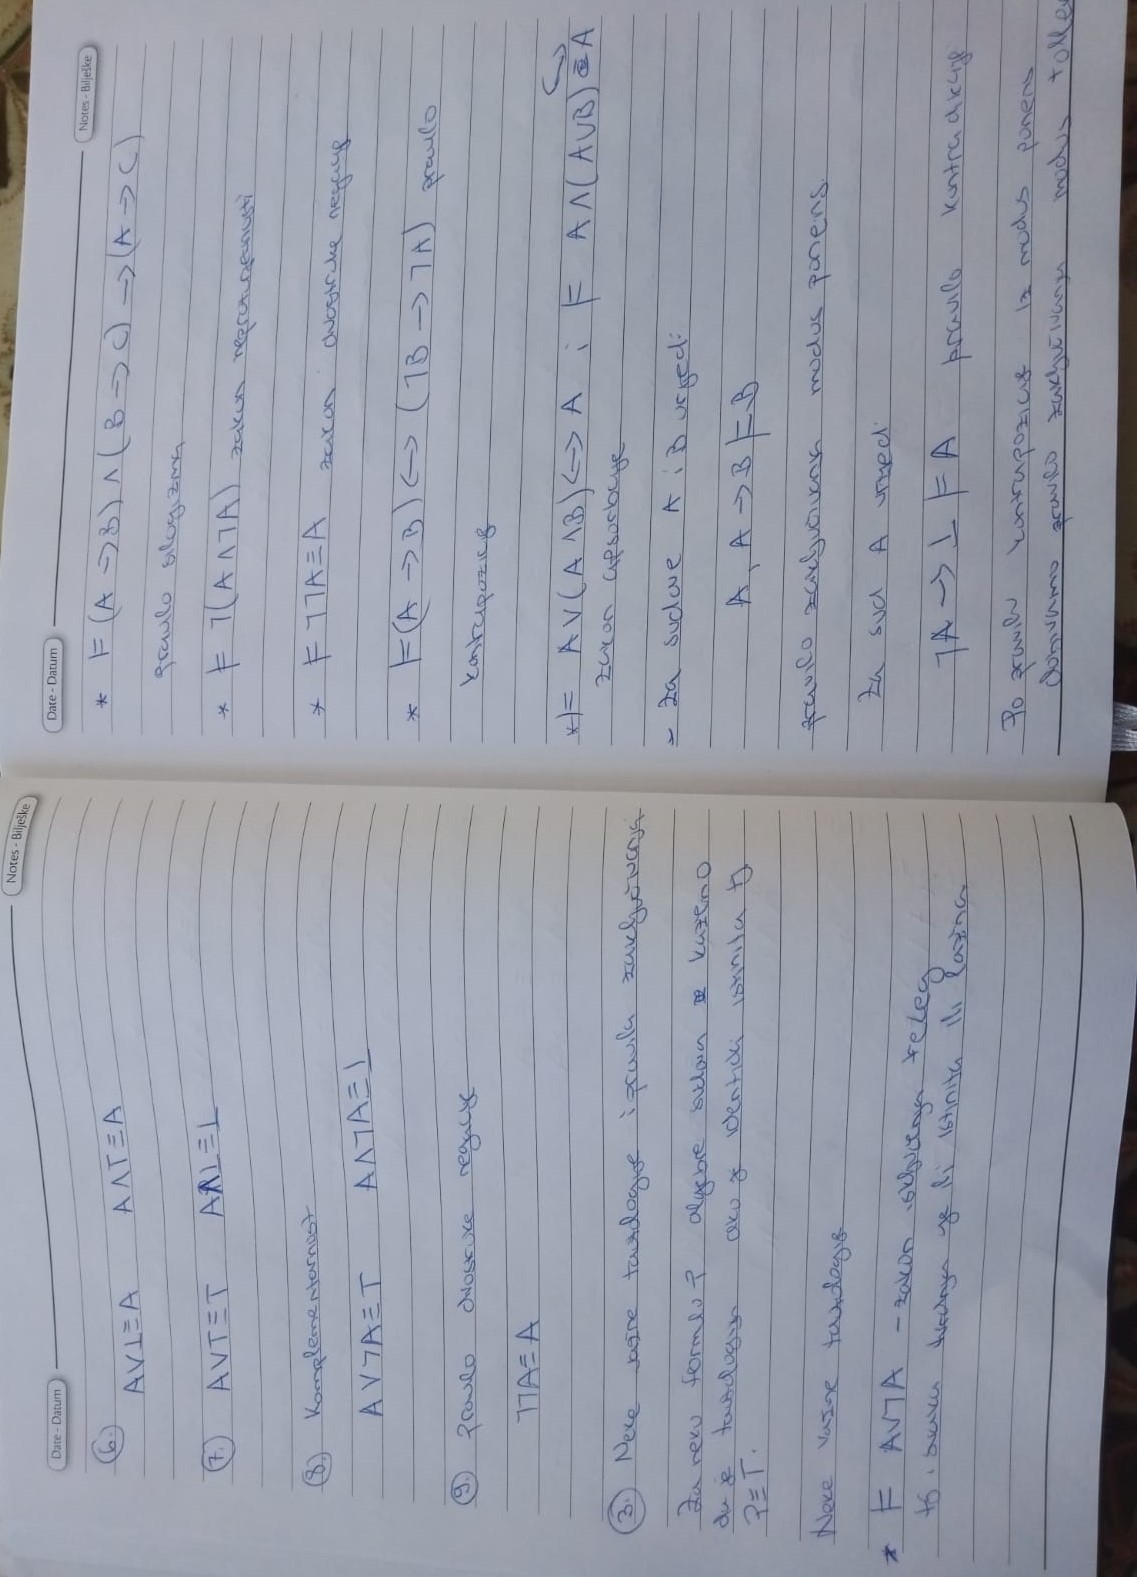 Date - Datum
Notes - Bilješke
6. A∨⊥≡A A∧T≡A
7. A∨T≡T A∧⊥≡⊥
8. Komplementarnost
A∨¬A≡T A∧¬A≡⊥
9. Pravilo dvostruke negacije
¬¬A≡A
3. Neke važne tautologije i pravila zaključivanja
Za neku formulu P algebre sudova kažemo
da je tautologija ako je identički istinita tj
P≡T.
Neke važne tautologije
* ⊨ A∨¬A - zakon isključenja trećeg
tj. svaka tvrdnja je ili istinita ili lažna
Date - Datum
Notes - Bilješke
* ⊨ (A→B)∧(B→C)→(A→C)
pravilo silogizma
* ⊨ ¬(A∧¬A) zakon neprotivrječnosti
* ⊨ ¬¬A≡A zakon dvostruke negacije
* ⊨(A→B)↔(¬B→¬A) pravilo
kontrapozicije
* ⊨ A∨(A∧B)↔A i ⊨ A∧(A∨B)↔A
zakon apsorbcije
- Za sudove A i B vrijedi:
A, A→B ⊨ B
pravilo zaključivanja modus ponens.
Za sud A vrijedi:
¬A→⊥ ⊨ A pravilo kontradikcije
Po pravilu kontrapozicije iz modus ponens
dobivamo pravilo zaključivanja modus